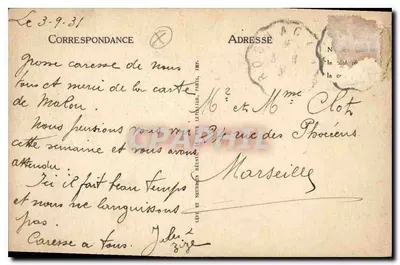 Le 3-9-31
CORRESPONDANCE
ADRESSE
Grosse caresse de nous
tous et merci de la carte
de Malou.
Nous pensions vous voir
cette semaine et vous avons
attendu.
Ici il fait beau temps
et nous ne languissons
pas.
Caresse a tous.
Mr et Mme Clot
rue des Phoceens
Marseille
CPAPHIL